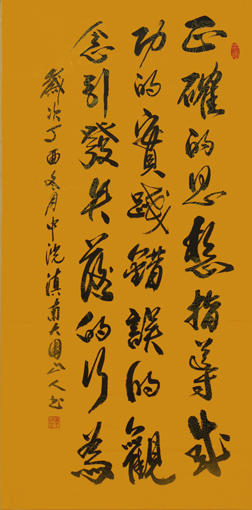 正確的思想指導成
功的實踐錯誤的觀
念引發失落的行為
歲次丁酉冬月中浣滇南大圍山人書